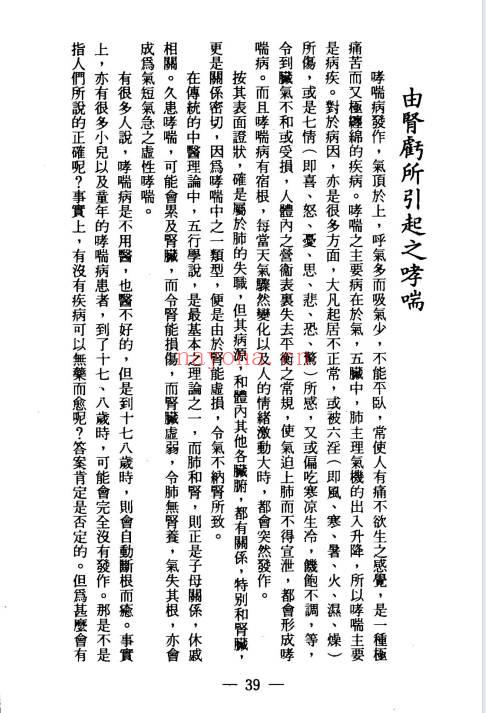 由腎虧所引起之哮喘
哮喘病發作，氣頂於上，呼氣多而吸氣少，不能平臥，常使人有痛不欲生之感覺，是一種極
痛苦而又極纏綿的疾病。哮喘之主要病在於氣，五臟中，肺主理氣機的出入升降，所以哮喘主要
是病疾。對於病因，亦是很多方面，大凡起居不正常，或被六淫（即風、寒、暑、火、濕、燥）
所傷，或是七情（即喜、怒、憂、思、悲、恐、驚）所感，又或偏吃寒涼生冷，饑飽不調，等，
令到臟氣不和或受損，人體內之營衞表裏失去平衡之常規，使氣迫上肺而不得宣泄，都會形成哮
喘病。而且哮喘病有宿根，每當天氣驟然變化以及人的情緒激動大時，都會突然發作。
按其表面證狀，確是屬於肺的失職，但其病源，和體內其他各臟腑，都有關係，特別和腎臟，
更是關係密切，因爲哮喘中之一類型，便是由於腎能虛損，令氣不納腎所致。
在傳統的中醫理論中，五行學說，是最基本之理論之一，而肺和腎，則正是子母關係，休戚
相關。久患哮喘，可能會累及腎臟，而令腎能損傷，而腎臟虛弱，令肺無腎養，氣失其根，亦會
成爲氣短氣急之虛性哮喘。
有很多人說，哮喘病是不用醫，也醫不好的，但是到十七八歲時，則會自動斷根而癒。事實
上，亦有很多小兒以及童年的哮喘病患者，到了十七、八歲時，可能會完全沒有發作。那是不是
指人們所說的正確呢？事實上，有沒有疾病可以無藥而愈呢？答案肯定是否定的。但爲甚麼會有
— 39 —
nayona.cn